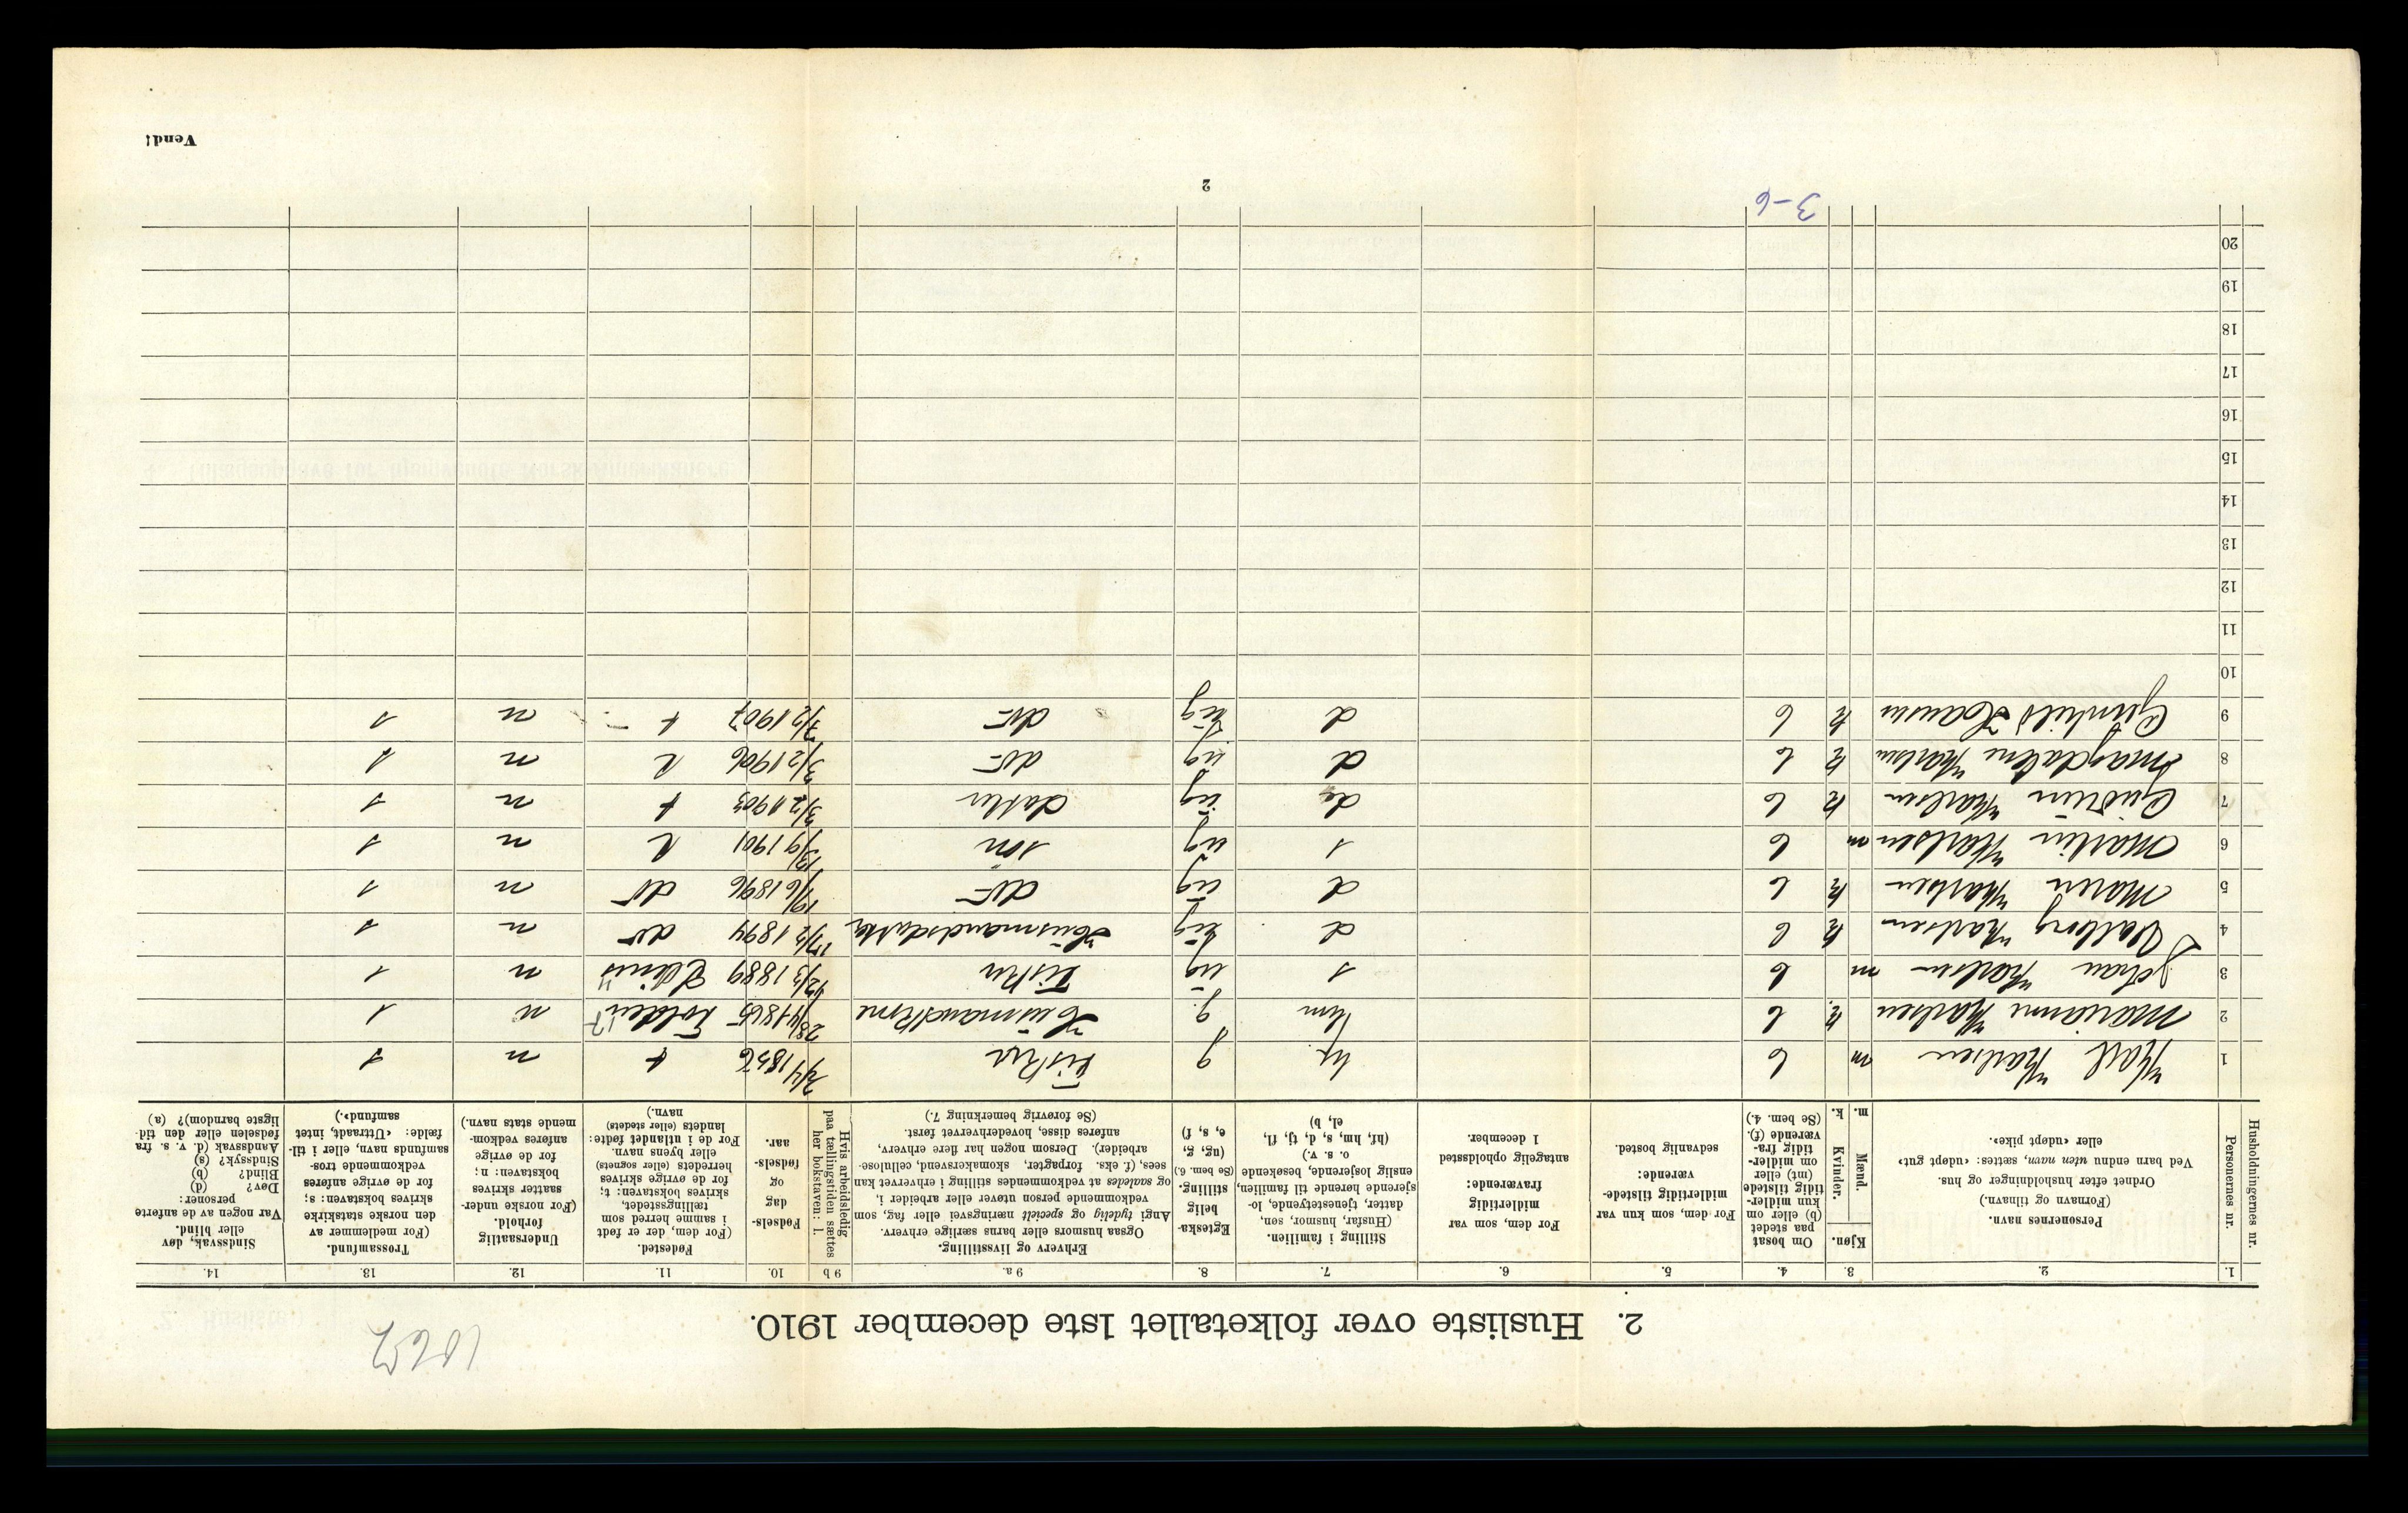 1067
2. Husliste over folketallet 1ste december 1910.
1. 2. 3. 4. 5. 6. 7. 8. 9 a. 9 b 10. 11. 12. 13. 14.
Husholdningernes nr.
Personernes nr.
Personernes navn.
(Fornavn og tilnavn.)
Ordnet efter husholdninger og hus.
Ved barn endnu uten navn, sættes: «udøpt gut»
eller «udøpt pike».
Kjøn.
Mænd.
Kvinder.
m. k.
Om bosat
paa stedet
(b) eller om
kun midler-
tidig tilstede
(mt) eller
om midler-
tidig fra-
værende (f).
(Se bem. 4.)
For dem, som kun var
midlertidig tilstede-
værende:
sedvanlig bosted.
For dem, som var
midlertidig
fraværende:
antagelig opholdssted
1 december.
Stilling i familien.
(Husfar, husmor, søn,
datter, tjenestetyende, lo-
sjerende hørende til familien,
enslig losjerende, besøkende
o. s. v.)
(hf, hm, s, d, tj, fl,
el, b)
Egteska-
belig
stilling.
(Se bem. 6.)
(ug, g,
e, s, f)
Erhverv og livsstilling.
Ogsaa husmors eller barns særlige erhverv.
Angi tydelig og specielt næringsvei eller fag, som
vedkommende person utøver eller arbeider i,
og saaledes at vedkommendes stilling i erhvervet kan
sees, (f. eks. forpagter, skomakersvend, cellulose-
arbeider). Dersom nogen har flere erhverv,
anføres disse, hovederhvervet først.
(Se forøvrig bemerkning 7.)
Hvis arbeidsledig
paa tællingstiden sættes
her bokstaven: l.
Fødsels-
dag
og
fødsels-
aar.
Fødested.
(For dem, der er født
i samme herred som
tællingsstedet,
skrives bokstaven: t;
for de øvrige skrives
herredets (eller sognets)
eller byens navn.
For de i utlandet fødte:
landets (eller stedets)
navn.)
Undersaatlig
forhold.
(For norske under-
saatter skrives
bokstaven: n;
for de øvrige
anføres vedkom-
mende stats navn.)
Trossamfund.
(For medlemmer av
den norske statskirke
skrives bokstaven: s;
for de øvrige anføres
vedkommende tros-
samfunds navn, eller i til-
fælde: «Uttraadt, intet
samfund».)
Sindssvak, døv
eller blind.
Var nogen av de anførte
personer:
Døv? (d)
Blind? (b)
Sindssyk? (s)
Aandssvak (d. v. s. fra
fødselen eller den tid-
ligste barndom)? (a)
1 Karl Karlsen m b hf. g Fisker 7/4 1856 t n s
2 Marianne Karlsen k. b hm g. Husmandskone 28/4 1865 Folden n s
3 Johan Karlsen m b s ug Fisker 12/3 1889 n s
4 Valborg Karlsen k b d ug Husmandsdatter 17/2 1894 do n s
5 Maren Karlsen k b d ug do 19/6 1896 do n s
6 Martin Karlsen m b s ug søn 13/9 1901 n s
7 Gudrun Karlsen k b d ug datter 3/2 1903 t n s
8 Magdalene Karlsen k b d ug do 3/2 1906 n s
9 Gunhild k b d ug do 7/2 1907 t n s
10
11
12
13
14
15
16
17
18
19
20
3-6
2
Vend!